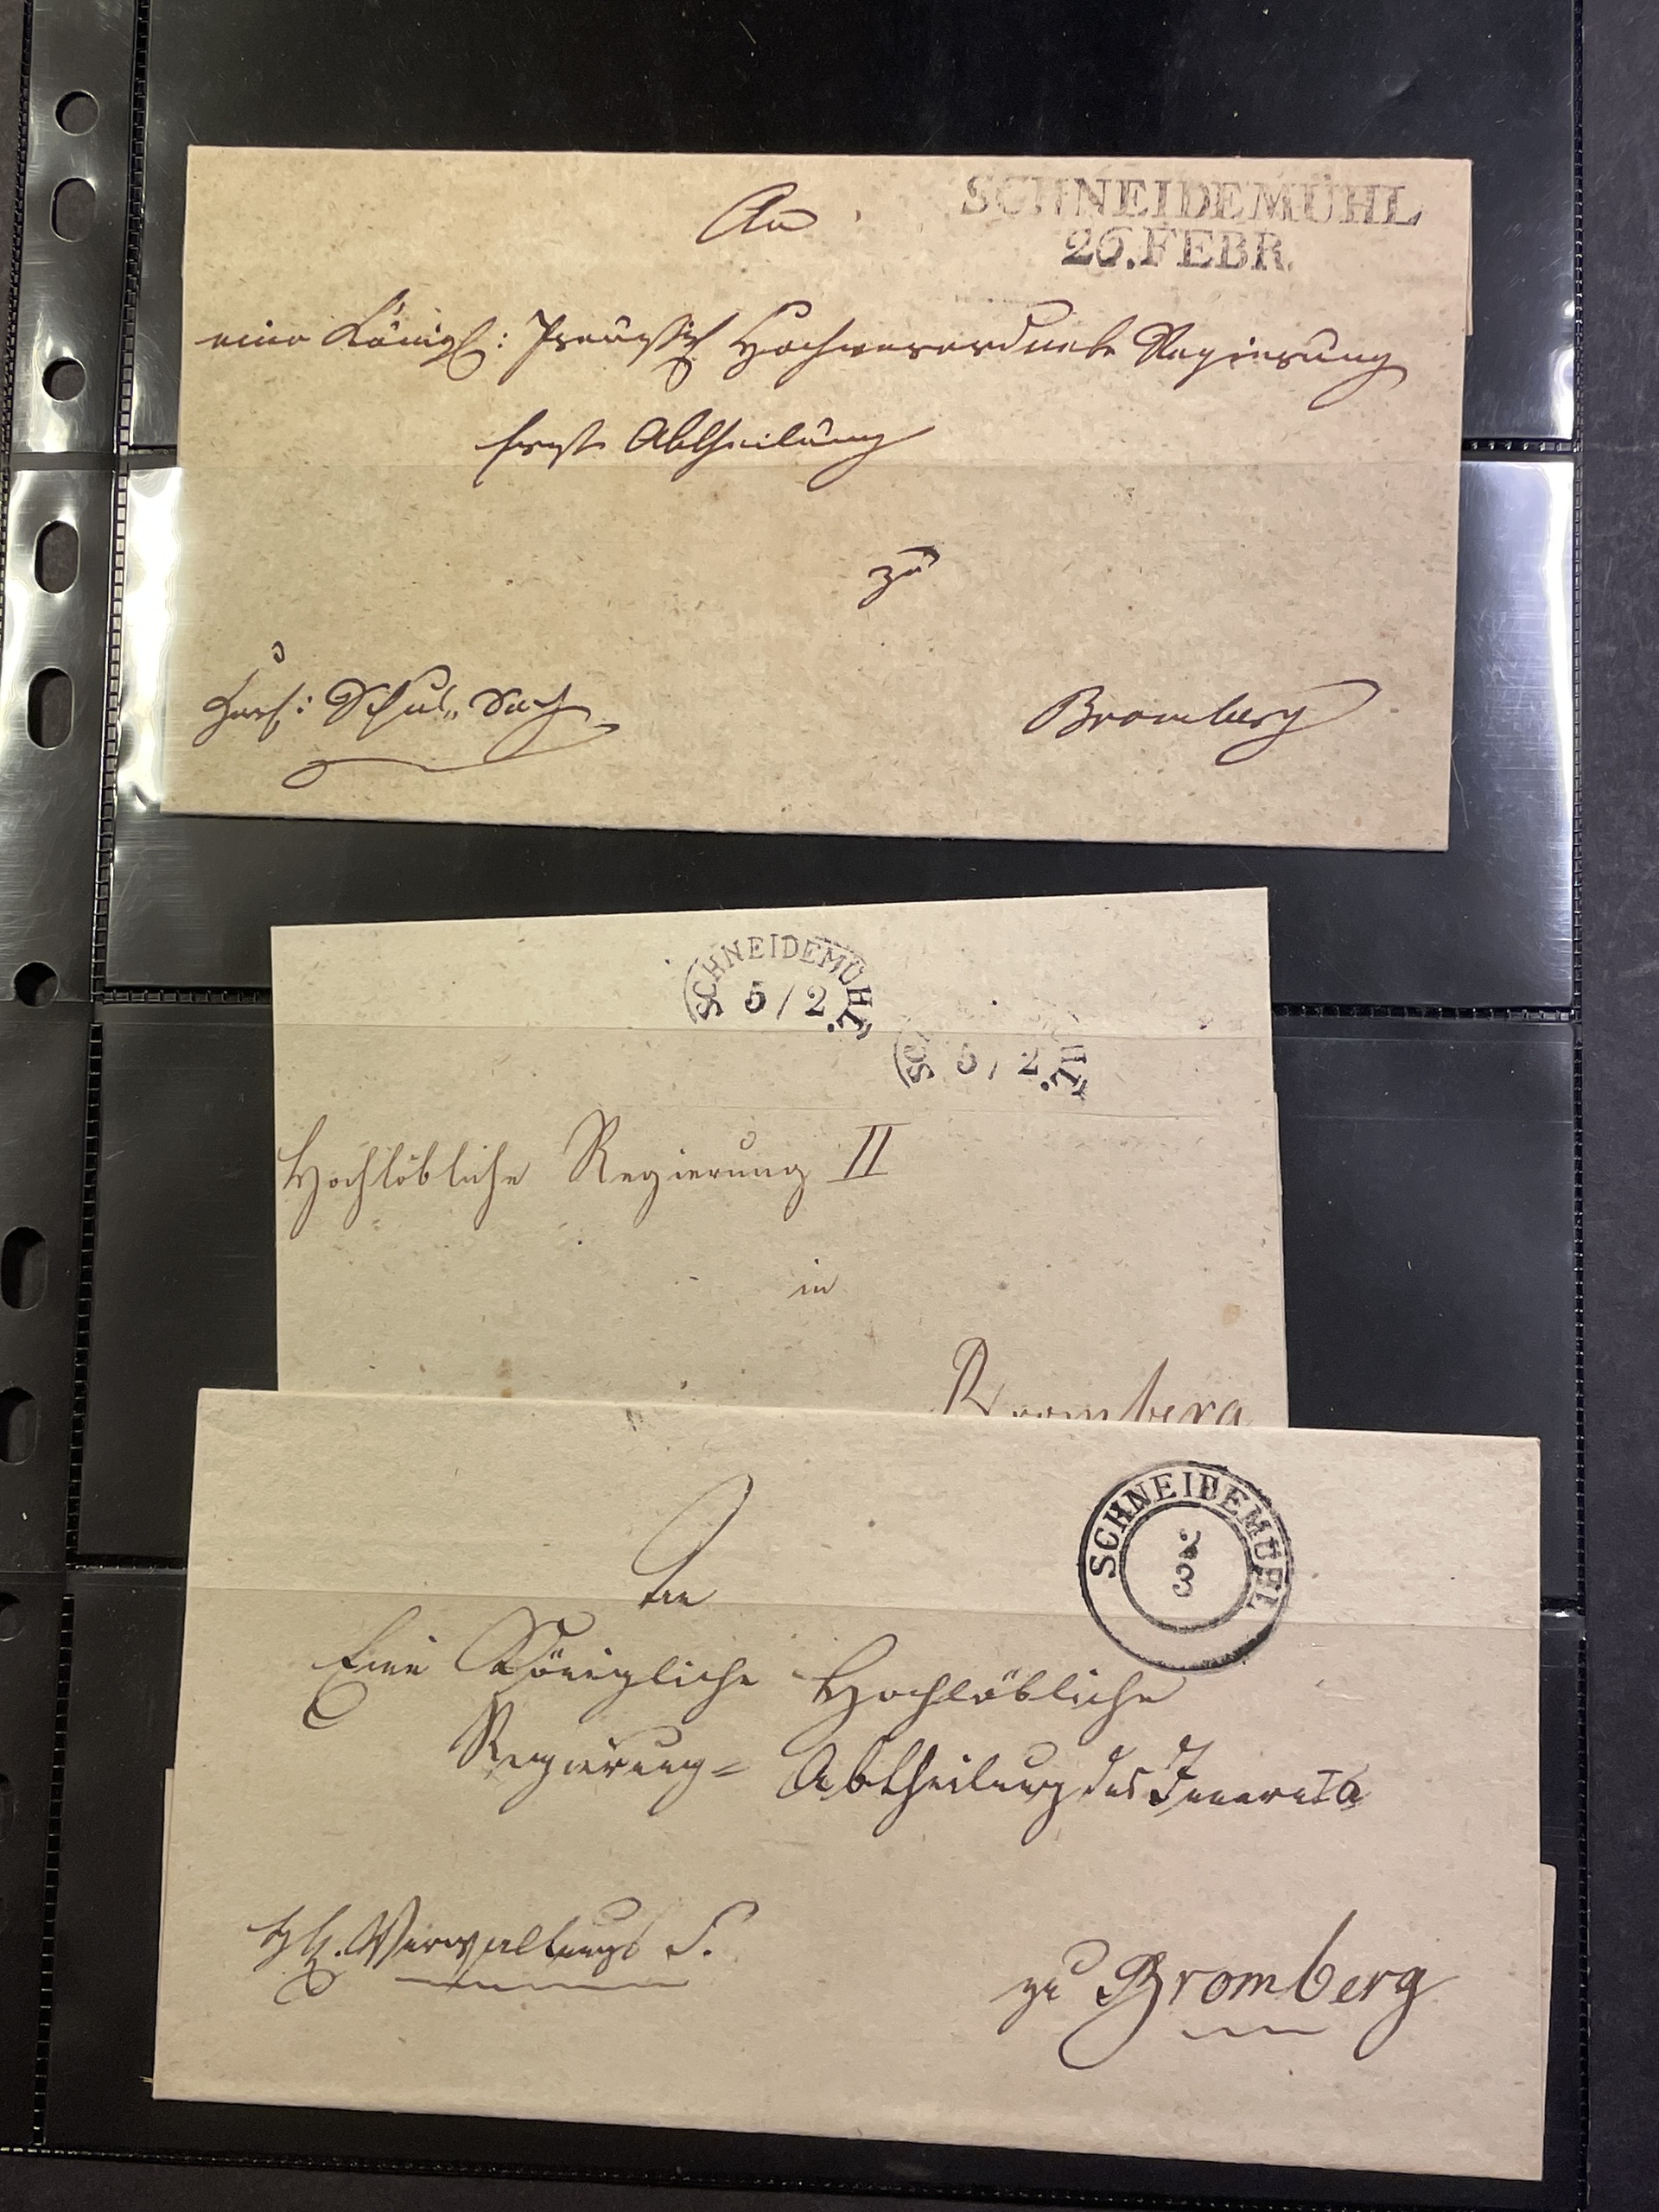 SCHNEIDEMÜHL
26.FEBR.
An
eine Königl: Preußisch Hochverordnete Regierung
Erste Abtheilung
zu
Schul Sache
Bromberg
SCHNEIDEMÜHL.
5/2
SCHNEIDEMÜHL.
5/2
Hochlöbliche Regierung II
in
Bromberg
SCHNEIDEMÜHL
2
8
An
Eine Königliche Hochlöbliche
Regierung= Abtheilung des Innern
Verwaltungs S.
zu Bromberg